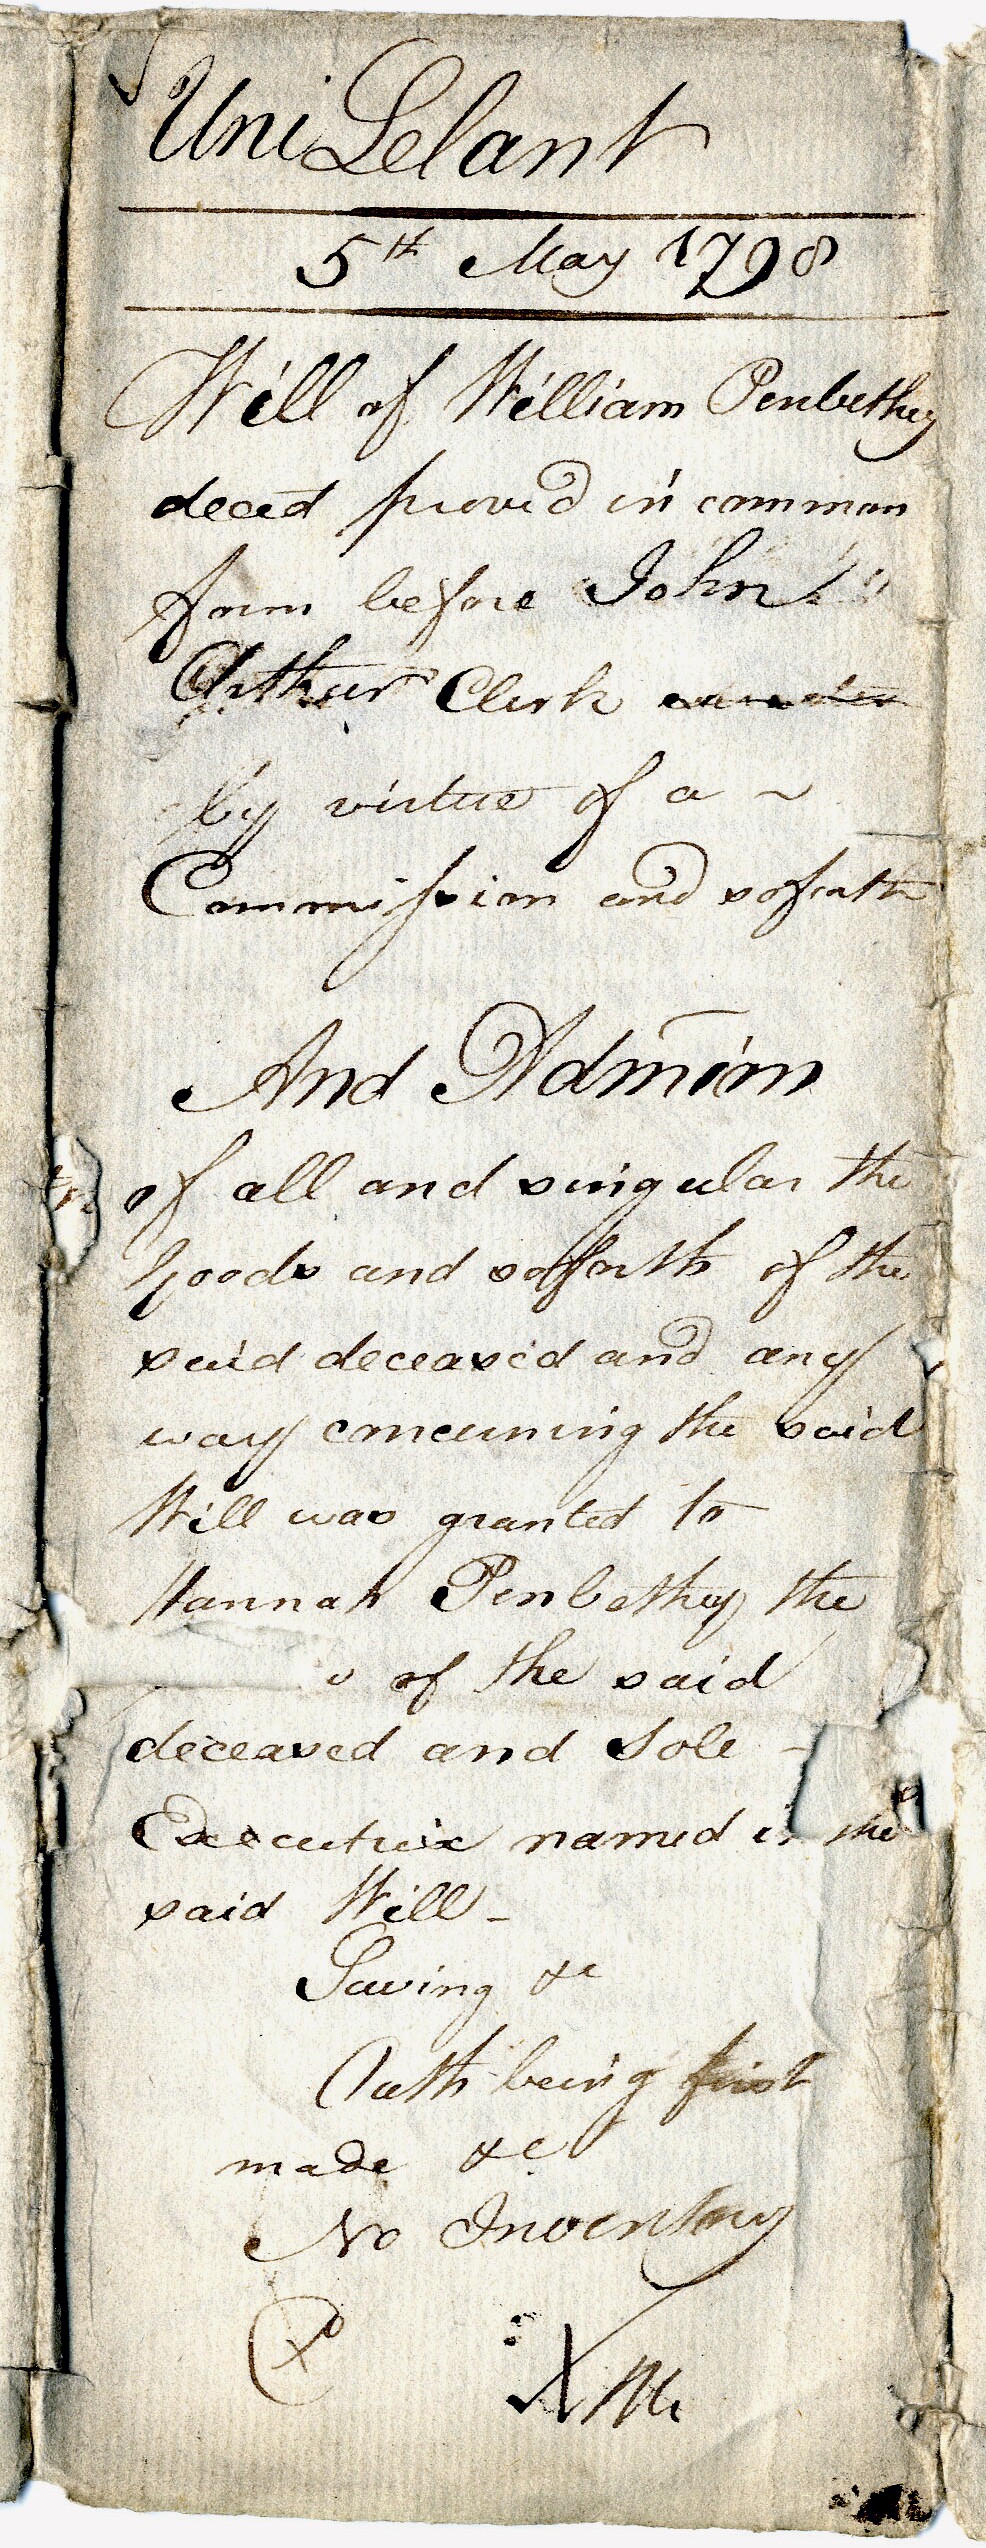 Uni Lelant
5th May 1798
Will of William Penbethey
deced proved in common
form before John
Arthur Clerk
by virtue of a ~
Commission and soforth
And Admion
of all and singular the
Goods and soforth of the
said deceased and any
way concerning the said
Will was granted to
Hannah Penbethey the
of the said
deceased and Sole -
Executrix named in the
said Will -
Saving &c
Oath being first
made &c
No Inventory